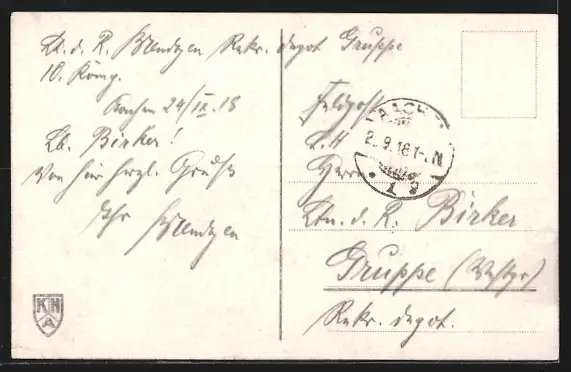 Lt. d. R. Rekr. depot Gruppe
10. Komp.
Aachen 24/IX. 18
Lb. Birker!
Von hier herzl. Gruß
Ihr
Feldpost
S. H.
Herrn
Ltn. d. R. Birker
Gruppe (Westpr)
Rekr. depot.
AACHEN
2 .9.18 1-. N
* 1
KH
A